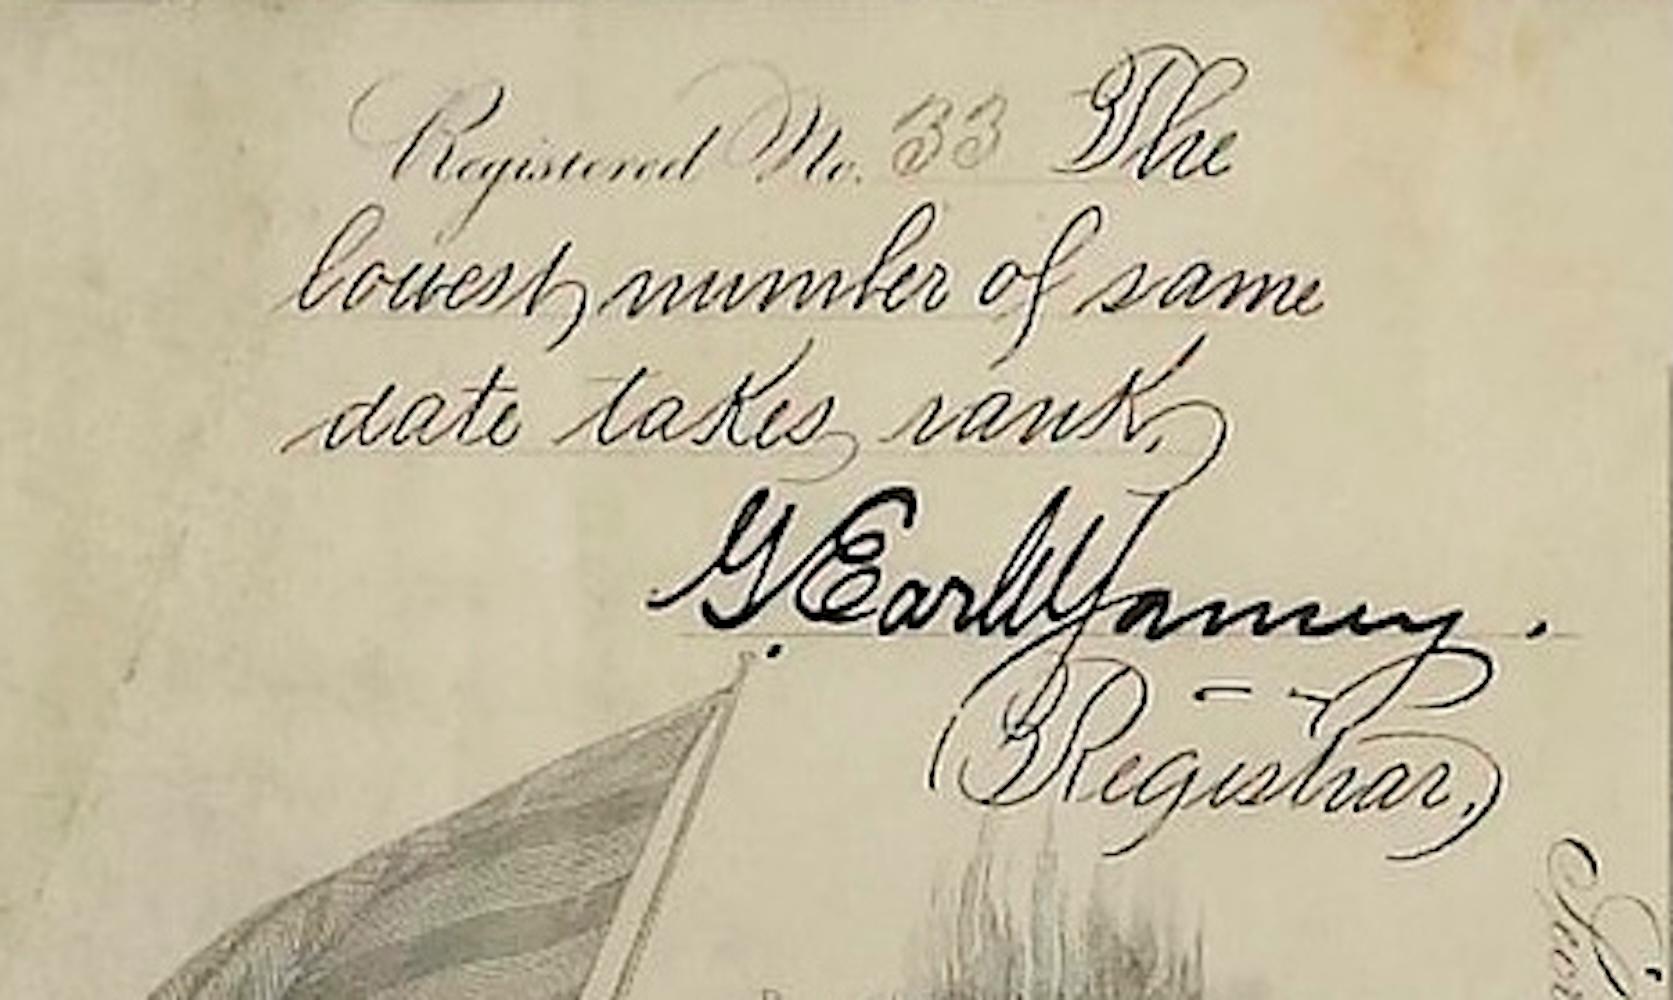 Registered No. 33 The
lowest number of same
date takes rank,
G. Earl
Registrar,